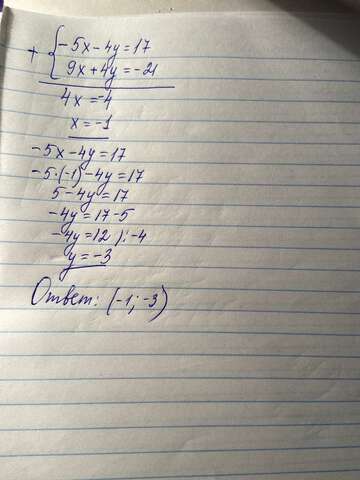 + { -5x-4y=17
9x+4y=-21
4x=-4
x=-1
-5x-4y=17
-5·(-1)-4y=17
5-4y=17
-4y=17-5
-4y=12 ):-4
y=-3
Ответ: (-1;-3)